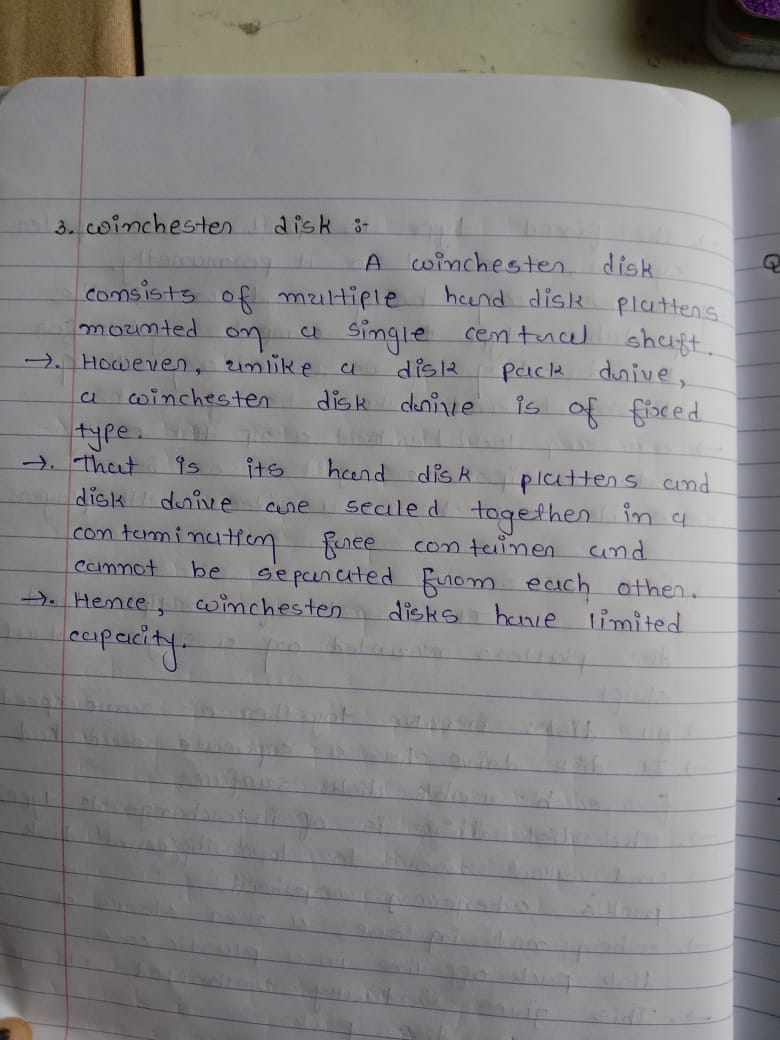 3. Winchester disk :-
A Winchester disk
consists of multiple hard disk platters
mounted on a single central shaft.
→. However, unlike a disk pack drive,
a winchester disk drive is of fixed
type.
→. That is its hard disk platters and
disk drive are sealed together in a
contamination free container and
cannot be separated from each other.
→. Hence, winchester disks have limited
capacity.